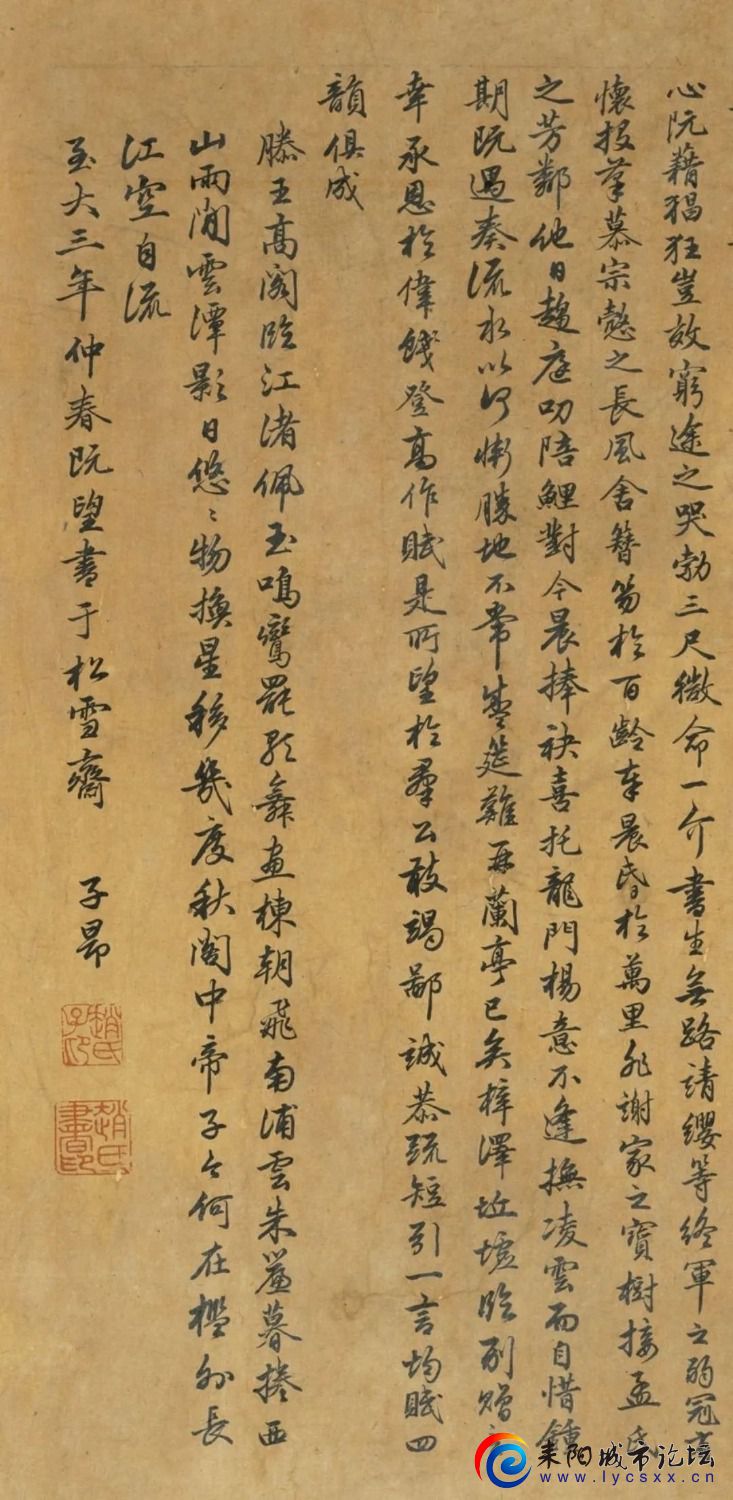 心阮藉猖狂豈效窮途之哭勃三尺微命一介書生無路請纓等終軍之弱冠有
懷投筆慕宗慤之長風舍簪笏於百齡奉晨昏於萬里非謝家之寶樹接孟氏
之芳鄰他日趨庭叨陪鯉對今晨捧袂喜托龍門楊意不逢撫凌雲而自惜鍾
期既遇奏流水以何慚勝地不常盛筵難再蘭亭已矣梓澤坵墟臨別贈言
幸承恩於偉餞登高作賦是所望於羣公敢竭鄙誠恭疏短引一言均賦四
韻俱成
滕王高閣臨江渚佩玉鳴鸞罷歌舞畫棟朝飛南浦雲朱簾暮捲西
山雨閒雲潭影日悠〻物換星移幾度秋閣中帝子今何在檻外長
江空自流
至大三年仲春既望書于松雪齋 子昂
趙氏
趙氏書印
耒阳城市论坛
www.lycsxx.cn